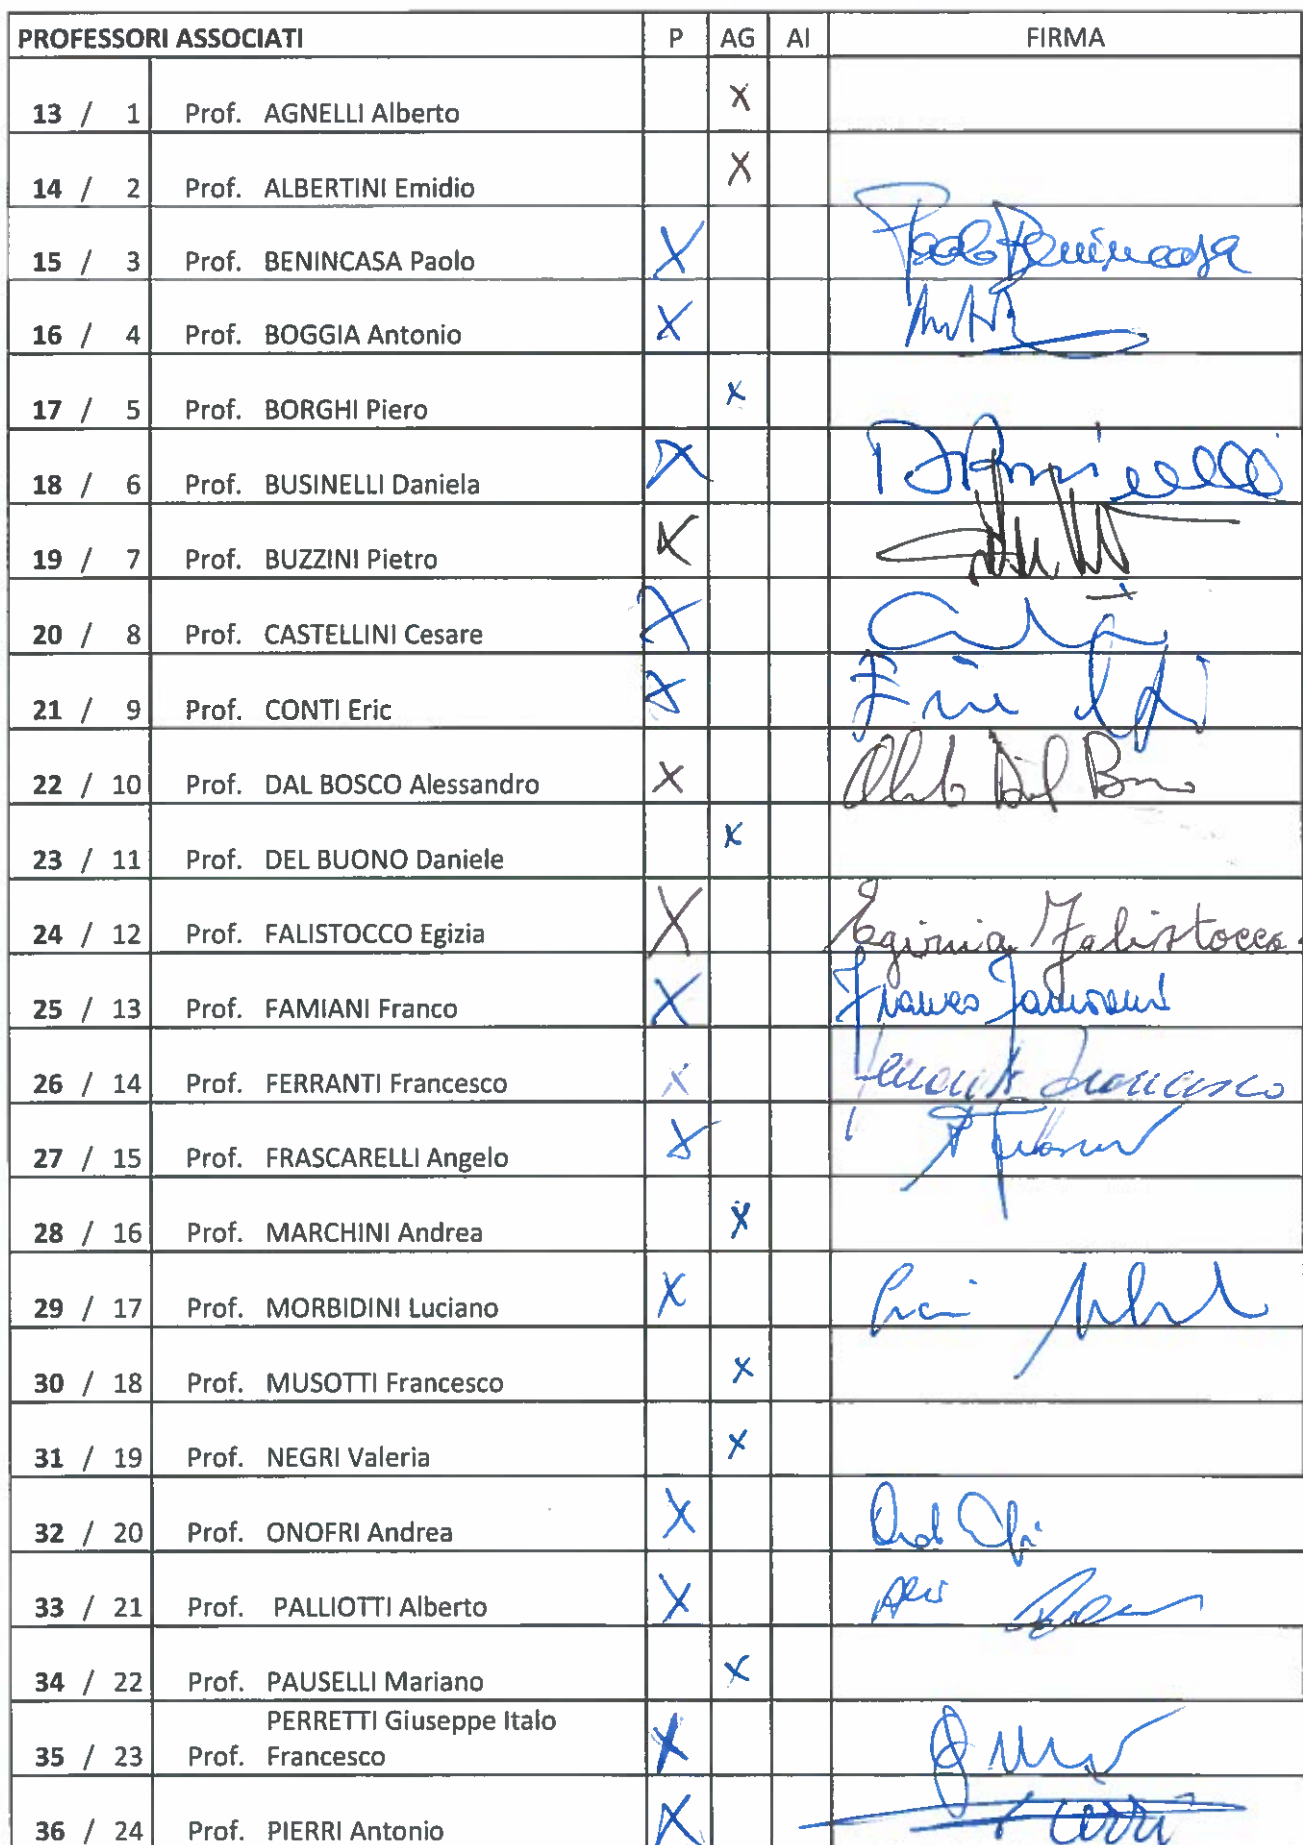 PROFESSORI ASSOCIATI P AG AI FIRMA
13 / 1 Prof. AGNELLI Alberto X
14 / 2 Prof. ALBERTINI Emidio X
15 / 3 Prof. BENINCASA Paolo X Paolo Benincasa
16 / 4 Prof. BOGGIA Antonio X
17 / 5 Prof. BORGHI Piero X
18 / 6 Prof. BUSINELLI Daniela X
19 / 7 Prof. BUZZINI Pietro X
20 / 8 Prof. CASTELLINI Cesare X
21 / 9 Prof. CONTI Eric X
22 / 10 Prof. DAL BOSCO Alessandro X
23 / 11 Prof. DEL BUONO Daniele X
24 / 12 Prof. FALISTOCCO Egizia X Egizia Falistocco
25 / 13 Prof. FAMIANI Franco X Franco Famiani
26 / 14 Prof. FERRANTI Francesco X Ferranti Francesco
27 / 15 Prof. FRASCARELLI Angelo X
28 / 16 Prof. MARCHINI Andrea X
29 / 17 Prof. MORBIDINI Luciano X
30 / 18 Prof. MUSOTTI Francesco X
31 / 19 Prof. NEGRI Valeria X
32 / 20 Prof. ONOFRI Andrea X
33 / 21 Prof. PALLIOTTI Alberto X
34 / 22 Prof. PAUSELLI Mariano X
PERRETTI Giuseppe Italo
35 / 23 Prof. Francesco X
36 / 24 Prof. PIERRI Antonio X